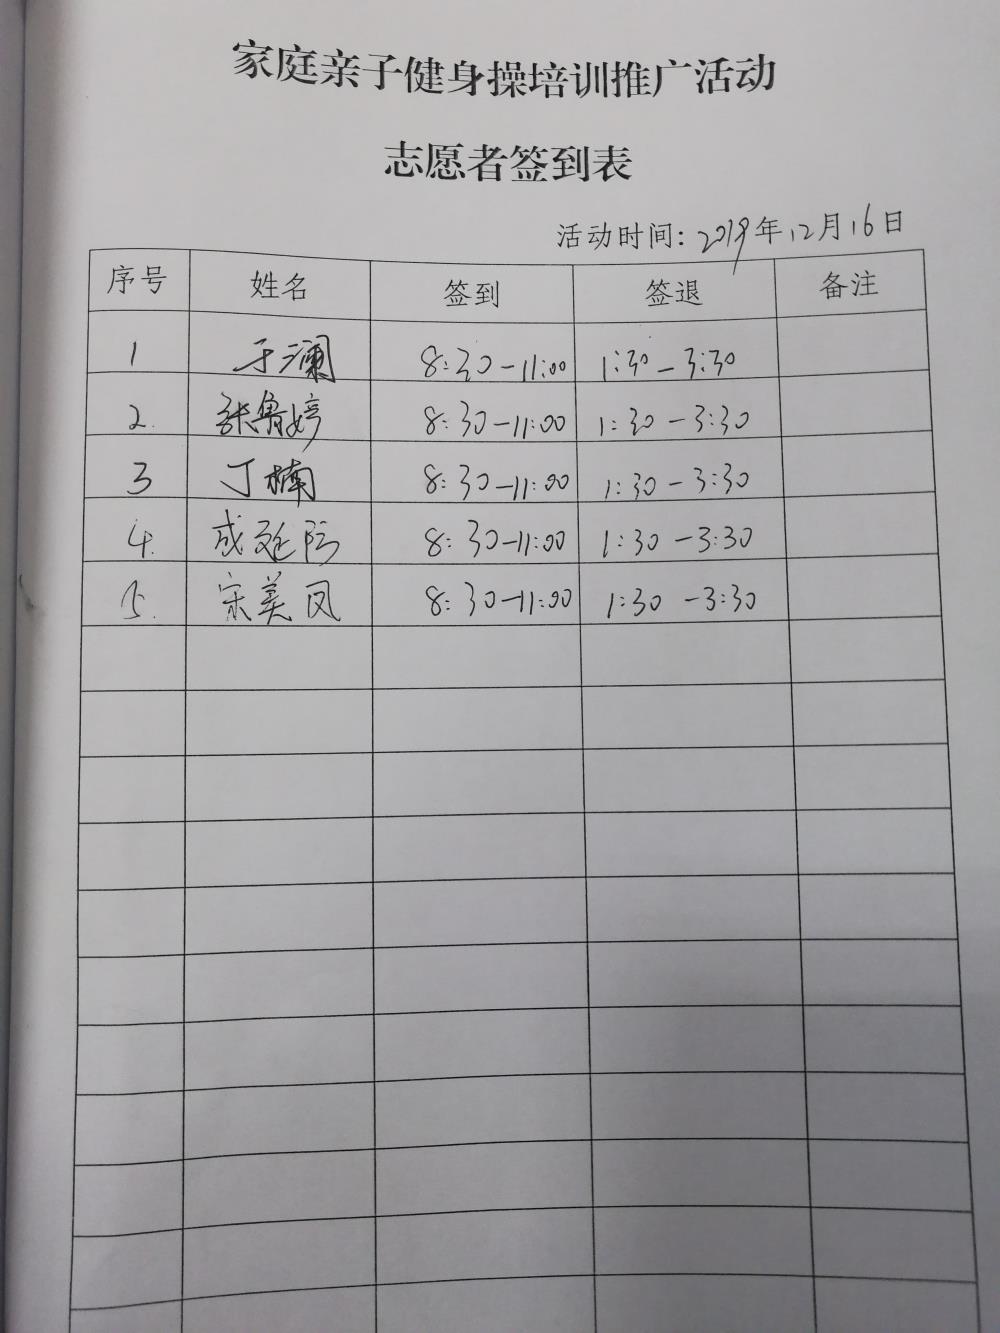 家庭亲子健身操培训推广活动
志愿者签到表
活动时间：2019年12月16日
序号 姓名 签到 签退 备注
1 于澜 8:30-11:00 1:30-3:30
2. 张鲁婷 8:30-11:00 1:30-3:30
3 丁楠 8:30-11:00 1:30-3:30
4. 成延 8:30-11:00 1:30-3:30
5. 宋美凤 8:30-11:00 1:30-3:30